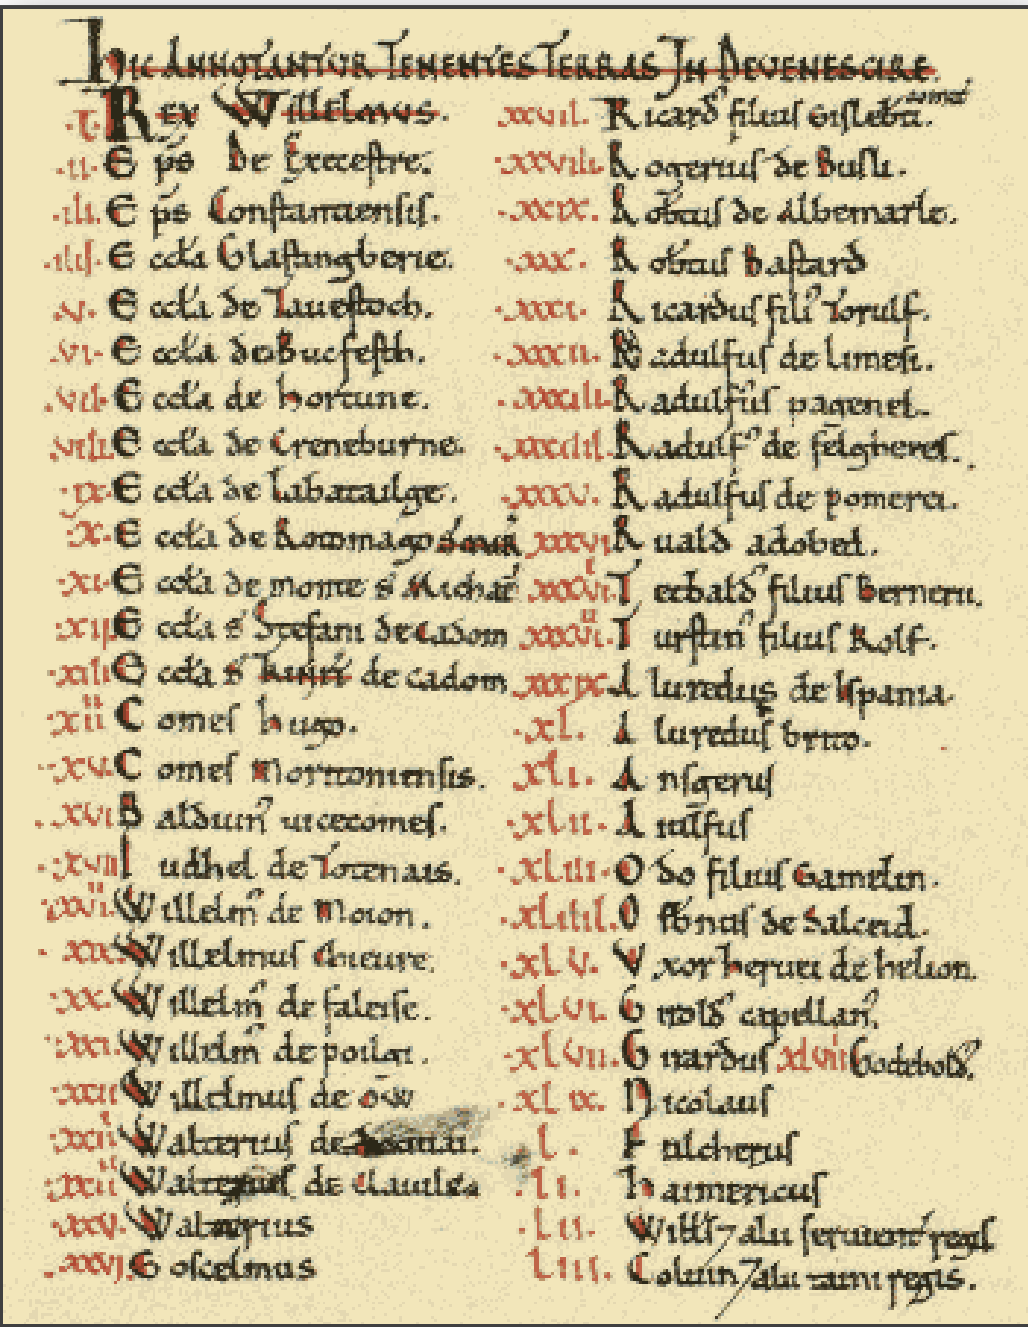 HIC ANNOTANTUR TENENTES TERRAS IN DEVENESCIRE.
.I. REX WILLELMUS.
.II. Eps de Execestre.
.III. Eps Constantiensis.
.IIII. Eccla Glastingberie.
.V. Eccla de Tauestoch.
.VI. Eccla de Bucfesth.
.VII. Eccla de Hortune.
.VIII. Eccla de Creneburne.
.IX. Eccla de Labatailge.
.X. Eccla de Rotomago
.XI. Eccla de monte S Michael
.XII. Eccla S Stefani de Cadom
.XIII. Eccla S de cadom
.XIIII. Comes hugo.
.XV. Comes Moritoniensis.
.XVI. Balduin uicecomes.
.XVII. Iudhel de Totenais.
.XVIII. Willelm de Moion.
.XIX. Willelmus Chieure.
.XX. Willelm de faleise.
.XXI. Willelm de poilgi.
.XXII. Willelmus de ow
.XXIII. Walterius de
.XXIIII. Walterius de Clauile.
.XXV. Walterius
.XXVI. Goscelmus
.XXVII. Ricard filius Gislebti. comes
.XXVIII. Rogerius de Busli.
.XXIX. Robtus de Albemarle.
.XXX. Robtus Bastard
.XXXI. Ricardus fili Torulf.
.XXXII. Radulfus de limesi.
.XXXIII. Radulfus pagenel.
.XXXIIII. Radulf de felgheres.
.XXXV. Radulfus de pomerei.
.XXXVI. Ruald adobed.
.XXXVII. Tetbald filius Bernerii.
.XXXVIII. Turstin filius Rolf.
.XXXIX. Aluredus de Ispania.
.XL. Aluredus brito.
.XLI. Ansgerus
.XLII. Aiulfus
.XLIII. Odo filius Gamelin.
.XLIIII. Osbnus de Salceid.
.XLV. Uxor heruei de helion.
.XLVI. Girold capellan.
.XLVII. Girardus XLVIII Godebold.
.XLIX. Nicolaus
.L. Fulcherus
.LI. haimericus
.LII. Wills 7 alii seruient regis
.LIII. Coluin 7 alii taini regis.